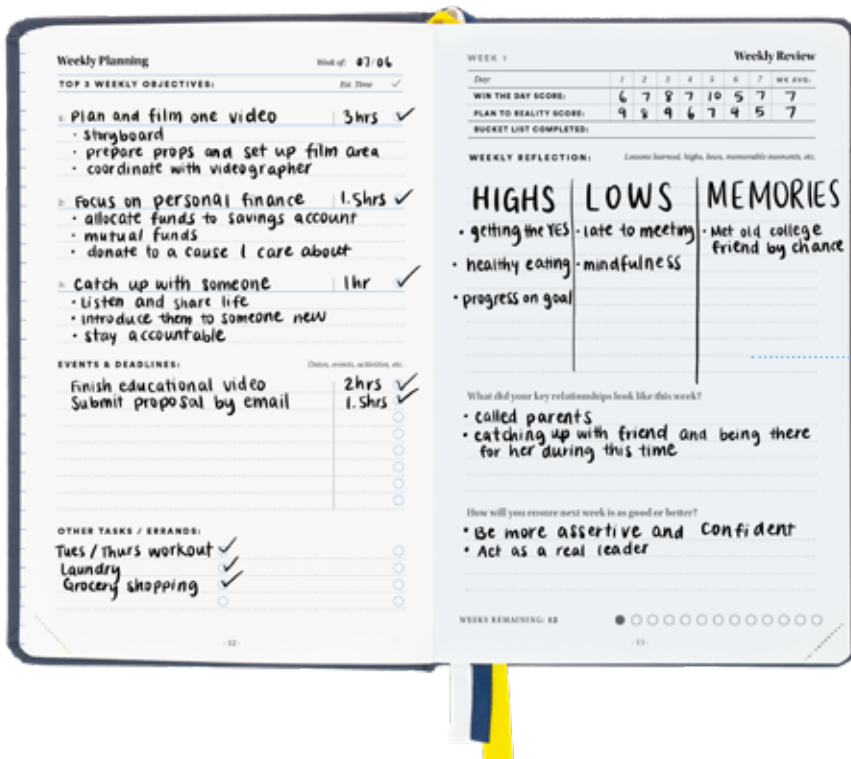 Weekly Planning
Week of: 07/06
TOP 3 WEEKLY OBJECTIVES:
Est. Time
1. Plan and film one video 3hrs
• storyboard
• prepare props and set up film area
• coordinate with videographer
2. Focus on personal finance 1.5hrs
• allocate funds to savings account
• mutual funds
• donate to a cause I care about
3. Catch up with someone 1hr
• Listen and share life
• introduce them to someone new
• stay accountable
EVENTS & DEADLINES:
Dates, events, activities, etc.
Finish educational video 2hrs
Submit proposal by email 1.5hrs
OTHER TASKS / ERRANDS:
Tues / Thurs workout
Laundry
Grocery shopping
- 12 -
WEEK 1
Weekly Review
Day: 1 2 3 4 5 6 7 WK AVG:
WIN THE DAY SCORE: 6 7 8 7 10 5 7 7
PLAN TO REALITY SCORE: 9 8 9 6 7 4 5 7
BUCKET LIST COMPLETED:
WEEKLY REFLECTION:
Lessons learned, highs, lows, memorable moments, etc.
HIGHS
• getting the YES
• healthy eating
• progress on goal
LOWS
• late to meeting
• mindfulness
MEMORIES
• Met old college
friend by chance
What did your key relationships look like this week?
• called parents
• catching up with friend and being there
for her during this time
How will you ensure next week is as good or better?
• Be more assertive and Confident
• Act as a real leader
WEEKS REMAINING: 12
- 13 -